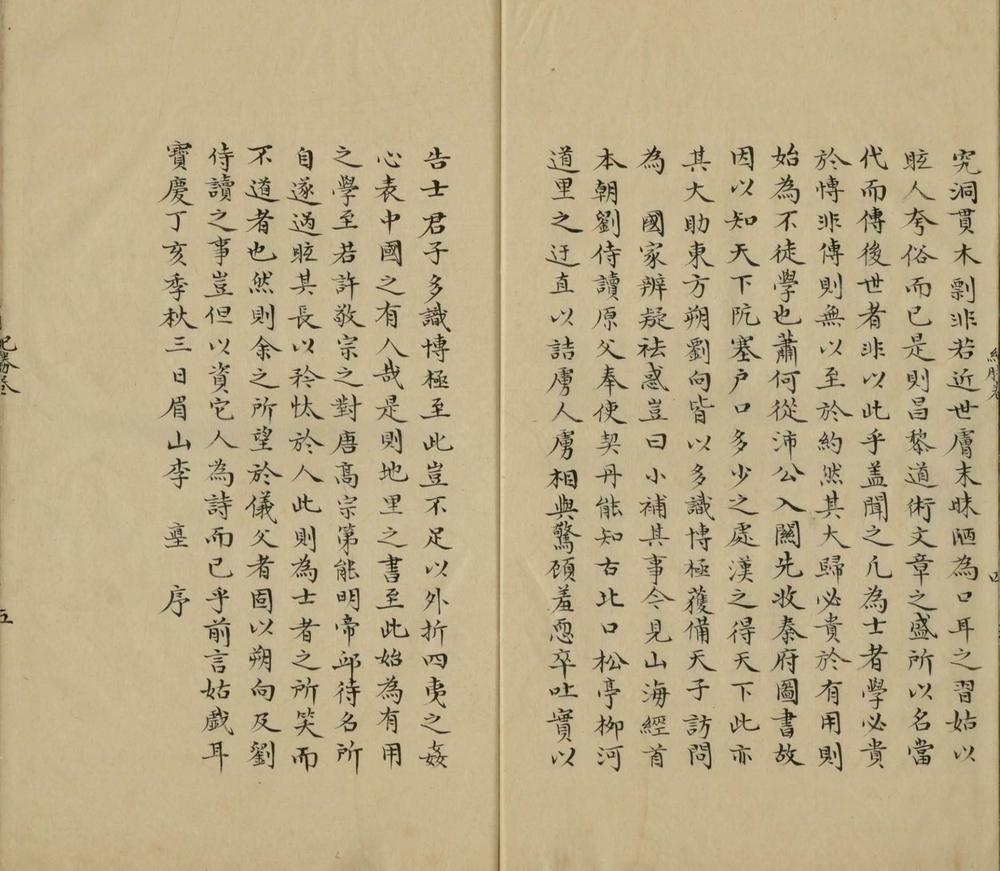 究洞貫木剽非若近世膚末昧陋為口耳之習姑以
眩人夸俗而已是則昌黎道術文章之盛所以名當
代而傳後世者非以此乎盖聞之凡為士者學必貴
於愽非傳則無以至於約然其大歸必貴於有用則
始為不徒學也蕭何從沛公入關先收秦府圖書故
因以知天下阨塞户口多少之處漢之得天下此亦
其大助東方朔劉向皆以多識博極獲備天子訪問
為 國家辨疑祛惑豈曰小補其事今見山海經首
本朝劉侍讀原父奉使契丹能知古北口松亭栁河
道里之迂直以詰虜人虜相與驚顧羞愳卒吐實以
告士君子多識博極至此豈不足以外折四夷之姦
心表中國之有人哉是則地里之書至此始為有用
之學至若許敬宗之對唐高宗苐能明帝邱待名所
自遂過眩其長以矜忕於人此則為士者之所笑而
不道者也然則余之所望於儀父者固以朔向及劉
侍讀之事豈但以資它人為詩而已乎前言姑戲耳
寶慶丁亥季秋三日眉山李 𡌴 序
紀勝卷
四
五